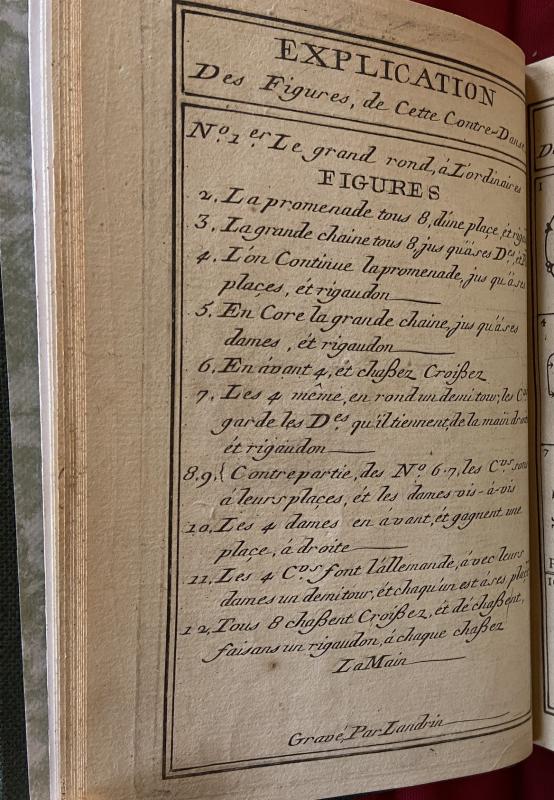 EXPLICATION
Des Figures, de Cette Contre-Danse
N.º 1.er Le grand rond, á L'ordinaires
FIGURES
2. La promenade tous 8, d'une plaçe, ét
3. La grande chaine tous 8, jus qu'á ses D.es, ét
4. L'on Continue la promenade, jus qu'á ses
plaçes, ét rigaudon
5. En Core la grande chaine, jus qu'á ses
dames, ét rigaudon
6. En ávant 4, ét chaßez Croißez
7. Les 4 même, en rond un demi tour, les C.vs
garde les D.es qu'il tiennent, de la main droite
ét rigaudon
8.9. { Contre partie, des N.º 6.7, les C.vs sont
á leurs plaçes, ét les dames vis-á-vis
10. Les 4 dames en ávant, ét gagnent une
plaçe, á droite
11. Les 4 C.vs font l'állemande, ávec leurs
dames un demi tour, ét chaqu'un est á ses plaçes
12. Tous 8 chaßent Croißez, ét dé chaßent,
faisans un rigaudon, á chaque chaßez
La Main
Gravé, Par Landrin
D
1
4
7